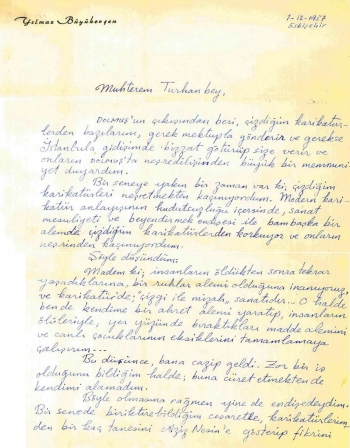 Yılmaz Büyükerşen
7-12-1957
Eskişehir
Muhterem Turhan bey,
DOLMUŞ'un çıkışından beri, çizdiğim karikatür-
lerden bazılarını, gerek mektupla gönderir ve gerekse
İstanbula gidişimde bizzat götürüp size verir ve
onların DOLMUŞ'ta neşredilişinden büyük bir memnuni-
yet duyardım.
Bir seneye yakın bir zaman var ki; çizdiğim
karikatürleri neşretmekten kaçınıyordum. Modern kari-
katür anlayışının hudutsuzluğu içersinde, sanat
mesuliyeti ve beyendirmek endişesi ile bambaşka bir
alemde çizdiğim karikatürlerden korkuyor ve onların
neşrinden kaçınıyordum.
Şöyle düşündüm;
Madem ki; insanların öldükten sonra tekrar
yaşadıklarına, bir ruhlar alemi olduğuna inanıyoruz,
ve karikatür'de; "çizgi ile mizah" sanatıdır... O halde
ben de kendime bir ahret alemi yaratıp, insanların
ölüleriyle, yer yüzünde bıraktıkları madde alemini
ve canlı çocuklarının eksiklerini tamamlamaya
çalışırım...
Bu düşünce, bana cazip geldi. Zor bir iş
olduğunu bildiğim halde; buna cüret etmekten de
kendimi alamadım.
Böyle olmasına rağmen yine de endişeliydim.
Bir senede biriktirebildiğim cesaretle, karikatürlerim
den bir kaç tanesini Aziz Nesin'e gösterip fikrini